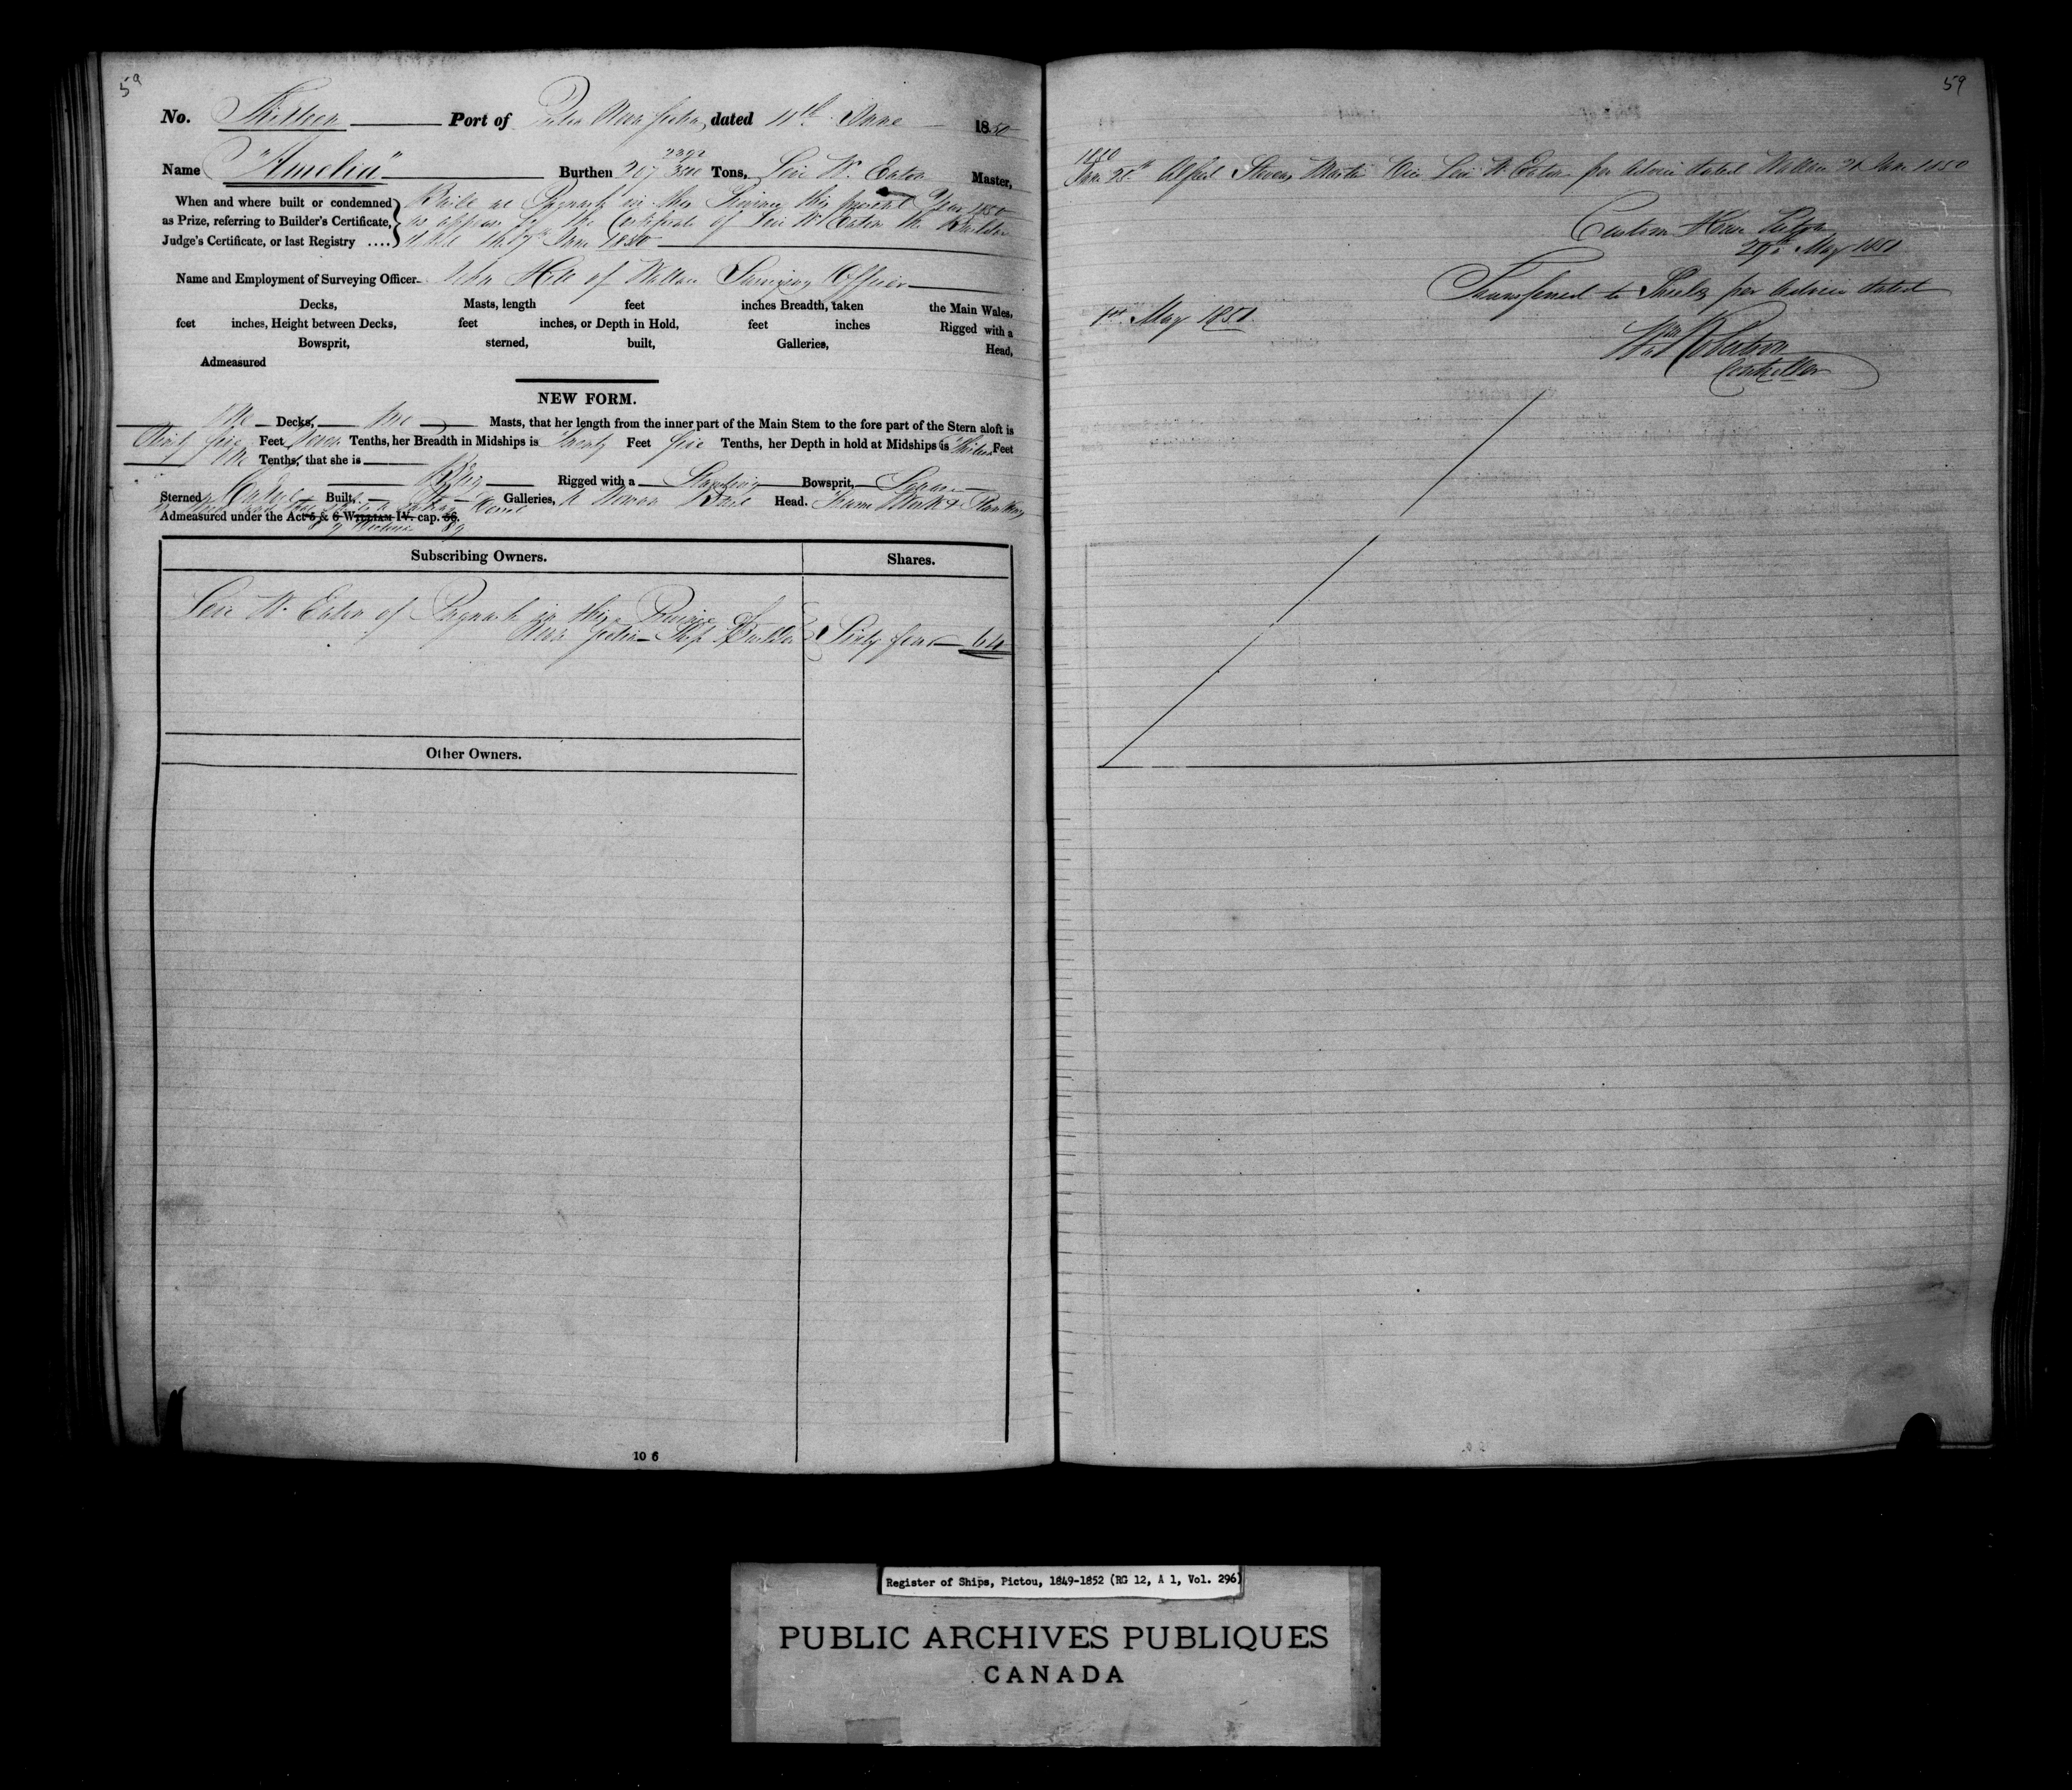 59
No. Thirteen Port of Pictou Nova Scotia, dated 11th June 1850
Name "Amelia" Burthen 207 2392/3500 Tons, Levi W. Eaton Master,
When and where built or condemned as Prize, referring to Builder's Certificate, Judge's Certificate, or last Registry ....
Built at Pugwash in this Province this present Year 1850
as appears by the Certificate of Levi W. Eaton the Builder
dated 7th June 1850
Name and Employment of Surveying Officer John Hill of Wallace Surveying Officer
Decks, Masts, length feet inches Breadth, taken the Main Wales,
feet inches, Height between Decks, feet inches, or Depth in Hold, feet inches Rigged with a
Bowsprit, sterned, built, Galleries, Head,
Admeasured
NEW FORM.
One Decks, two Masts, that her length from the inner part of the Main Stem to the fore part of the Stern aloft is
Ninety five Feet Tenths, her Breadth in Midships is Twenty Feet five Tenths, her Depth in hold at Midships is Thirteen Feet
one Tenths, that she is Brig Rigged with a Standing Bowsprit, Square
Sterned Carvel Built, No Galleries, A Woman Bust Head. Frame Work & Planking
Admeasured under the Act 5 & 6 WILLIAM IV. cap. 56.
8 & 9 Victoria 89
Subscribing Owners. Shares.
Levi W. Eaton of Pugwash in this Province of
Nova Scotia Ship Builder Sixty four 64
Other Owners.
10 6
59
1850
June 25th Alfred Stevens Master Vice Levi W. Eaton per Advice dated Wallace 21 June 1850
Custom House Pictou
29th May 1851
Transferred to Shields per Advice dated
1st May 1851.
Wm Robertson
Controller
Register of Ships, Pictou, 1849-1852 (RG 12, A 1, Vol. 296)
PUBLIC ARCHIVES PUBLIQUES
CANADA